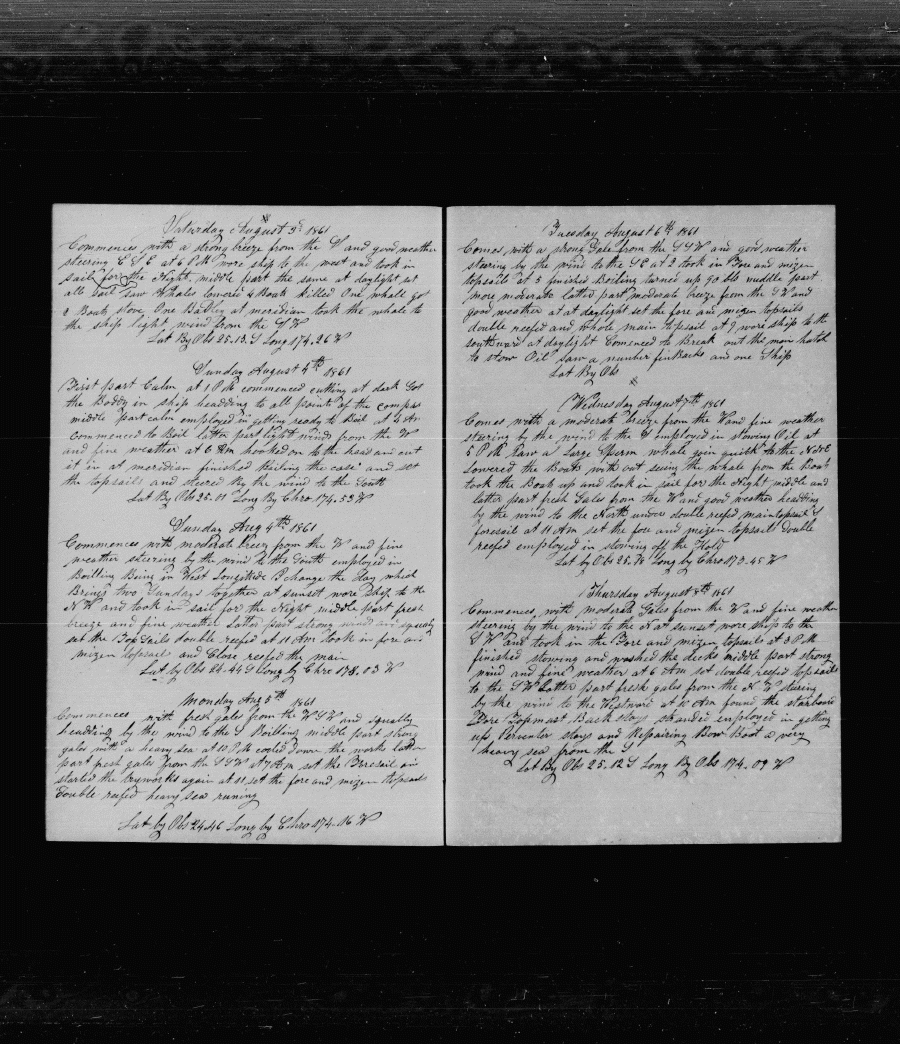 Saturday August 3d 1861
Commences with a strong breeze from the S and good weather
steering E S E at 6 P M wore ship to the west and took in
sail for the Night middle part the same at daylight set
all sail saw Whales lowered 4 Boats killed One whale got
2 Boats stove One Badley at meridian took the whale to
the ship light wind from the S W
Lat By Obs 25.13 S Long 174.26 W
Sunday August 4th 1861
First part Calm at 1 P M commenced cutting at dark Got
the Boddy in ship headding to all point of the compas
middle part calm employed in getting ready to Boil at 4 Am
commenced to Boil latter part light winds from the W
and fine weather at 6 Am hooked on to the head and cut
it in at meridian finished Bailing the case and set
the topsails and steered By the wind to the South
Lat By Obs 25.01 Long By Chro 174.53 W
Sunday Aug 4th 1861
Commences with moderate Breez from the W and fine
weather steering by the wind to the South employed in
Boilling Being in West Longitude I change the day which
Brings two Sundays together at sunset wore ship to the
N W and took in sail for the Night middle part fresh
breeze and fine weather Latter part strong winds and squaly
set the Top Sails double reefed at 11 Am took in fore and
mizen topsail and Close reefed the main
Lat by Obs 24.44 S Long by Chro 173.03 W
Monday Aug 5th 1861
Commences with fresh gales from the W S W and squally
headding by the wind to the S Boilling middle part strong
gales with a heavy sea at 10 P M cooled down the works latter
part fresh gales from the S S W at 7 Am set the Foresail and
started the tryworks again at 11 set the fore and mizen topsails
double reefed heavy sea runing
Lat by Obs 24.46 Long by Chro 174.16 W
Tuesday August 6th 1861
Comes with a strong Gale from the S S W and good weather
steering by the wind to the S E at 2 took in Fore and mizen
topsails at 3 finished Boiling turned up 90 bls middle part
more moderate latter part moderate breeze from the S W and
good weather at at daylight set the fore and mizen topsails
double reefed and whole main topsail at 9 wore ship to the
southward at daylight Comenced to Break out the main hatch
to stow Oil saw a number finBacks and one Ship
Lat By Obs
Wednesday August 7th 1861
Comes with a moderate breeze from the W and fine weather
steering by the wind to the S employed in stowing Oil at
5 P M Saw a Large Sperm whale goin quick to the NNE
Lowered the Boats with out seeing the whale from the boat
took the Boat up and took in sail for the Night middle and
latter part fresh Gales from the W and good weather headding
by the wind to the North under double reefed maintopsail &
foresail at 11 Am set the fore and mizen topsails double
reefed employed in stowing off the Hold
Lat by Obs 25. Long by Chro 173.45 W
Thursday August 8th 1861
Commences with moderate Gales from the W and fine weather
steering by the wind to the N at sunset wore ship to the
S W and took in the Fore and mizen topsails at 3 P M
finished stowing and washed the decks middle part strong
wind and fine weather at 6 Am set double reefed topsails
to the S W Latter part fresh gales from the N W stering
by the wind to the Westward at 10 Am found the starboard
Fore Topmast Back stays stranded employed in getting
up stays and Repairing Bow Boat a very
heavy sea from the S
Lat By Obs 25.12 S Long By Obs 174.09 W